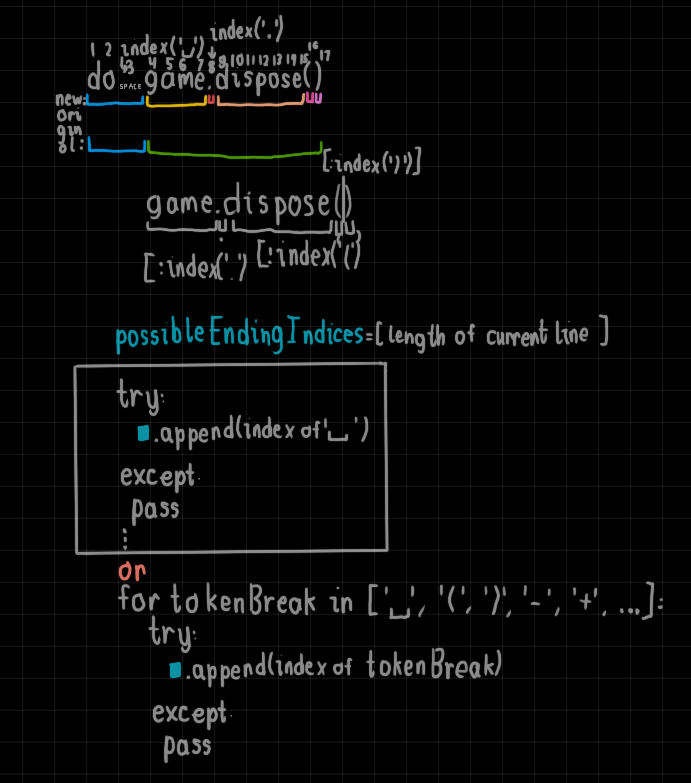 index('.')
1 2 index('␣')
3 4 5 6 7 8 9 10 11 12 13 14 15 16 17
do SPACE game.dispose()
new:
ori
gin
al:
[:index(')')]
game.dispose()
[:index('.') [:index('(')
possibleEndingIndices=[length of current line ]
try:
.append(index of '␣')
except:
pass
⋮
or
for tokenBreak in ['␣', '(', ')', '-', '+', ...]:
try:
.append(index of tokenBreak)
except:
pass